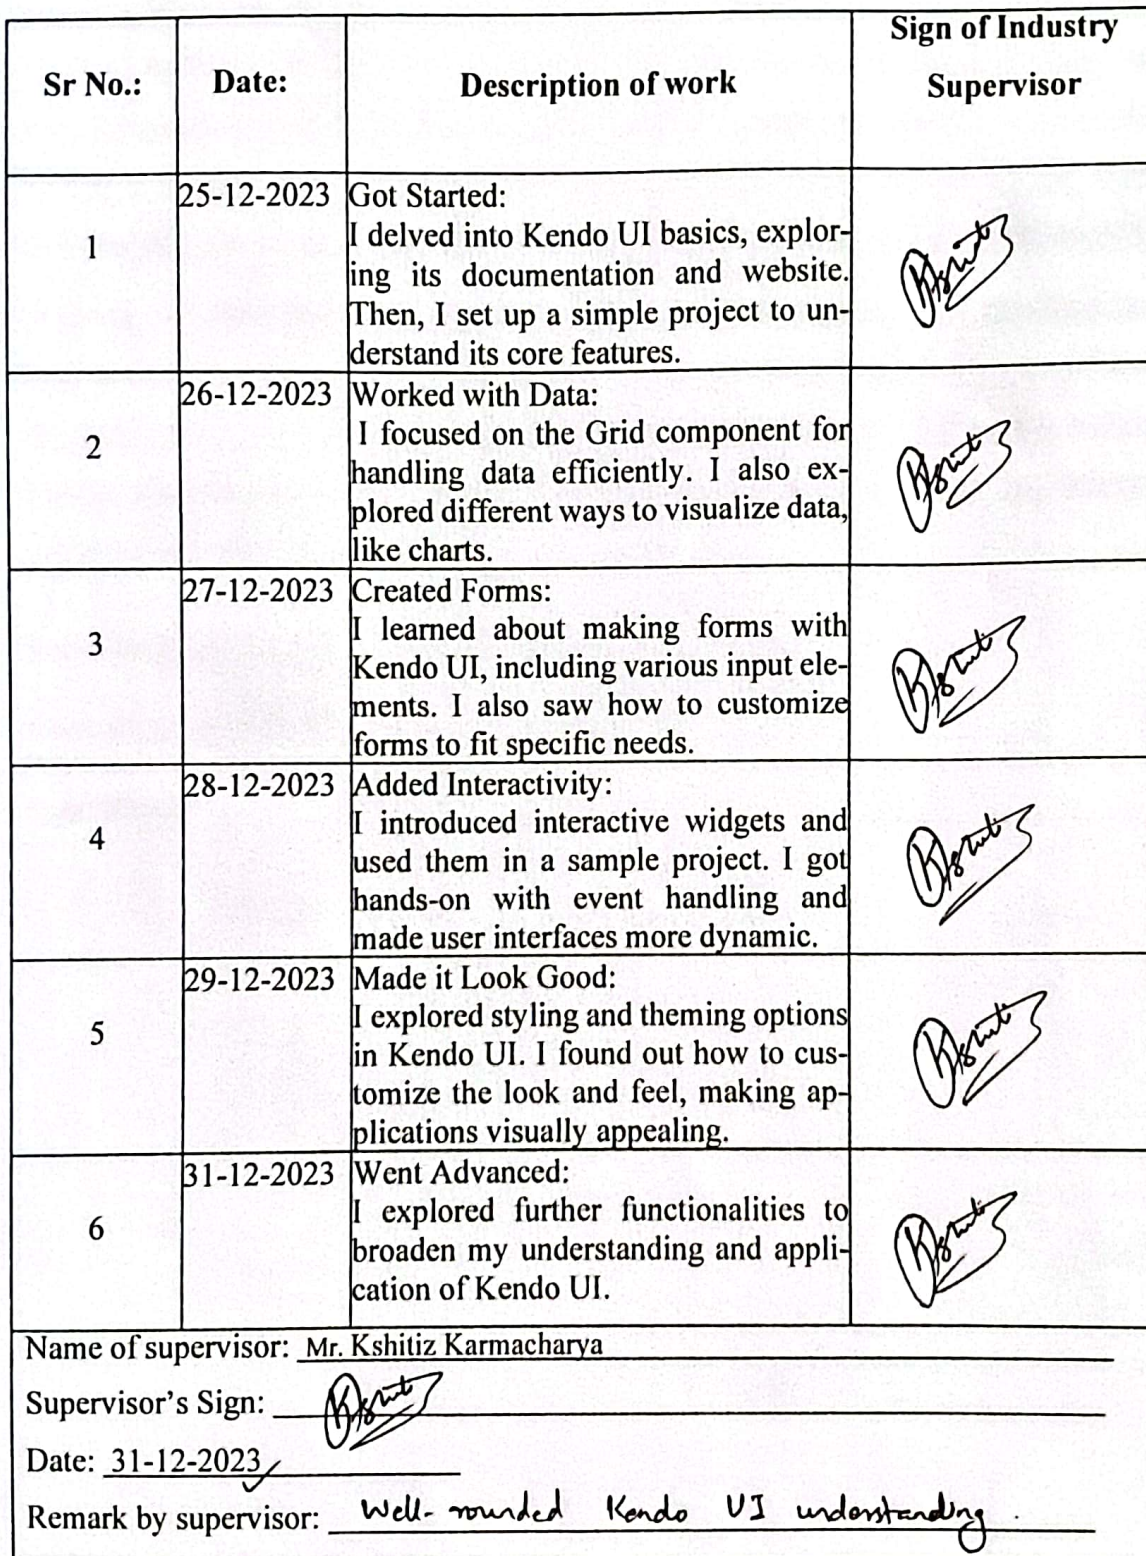 Sr No.: Date: Description of work Sign of Industry
Supervisor
1 25-12-2023 Got Started:
I delved into Kendo UI basics, explor-
ing its documentation and website.
Then, I set up a simple project to un-
derstand its core features.
2 26-12-2023 Worked with Data:
I focused on the Grid component for
handling data efficiently. I also ex-
plored different ways to visualize data,
like charts.
3 27-12-2023 Created Forms:
I learned about making forms with
Kendo UI, including various input ele-
ments. I also saw how to customize
forms to fit specific needs.
4 28-12-2023 Added Interactivity:
I introduced interactive widgets and
used them in a sample project. I got
hands-on with event handling and
made user interfaces more dynamic.
5 29-12-2023 Made it Look Good:
I explored styling and theming options
in Kendo UI. I found out how to cus-
tomize the look and feel, making ap-
plications visually appealing.
6 31-12-2023 Went Advanced:
I explored further functionalities to
broaden my understanding and appli-
cation of Kendo UI.
Name of supervisor: Mr. Kshitiz Karmacharya
Supervisor's Sign:
Date: 31-12-2023
Remark by supervisor: Well-rounded Kendo UI understanding.